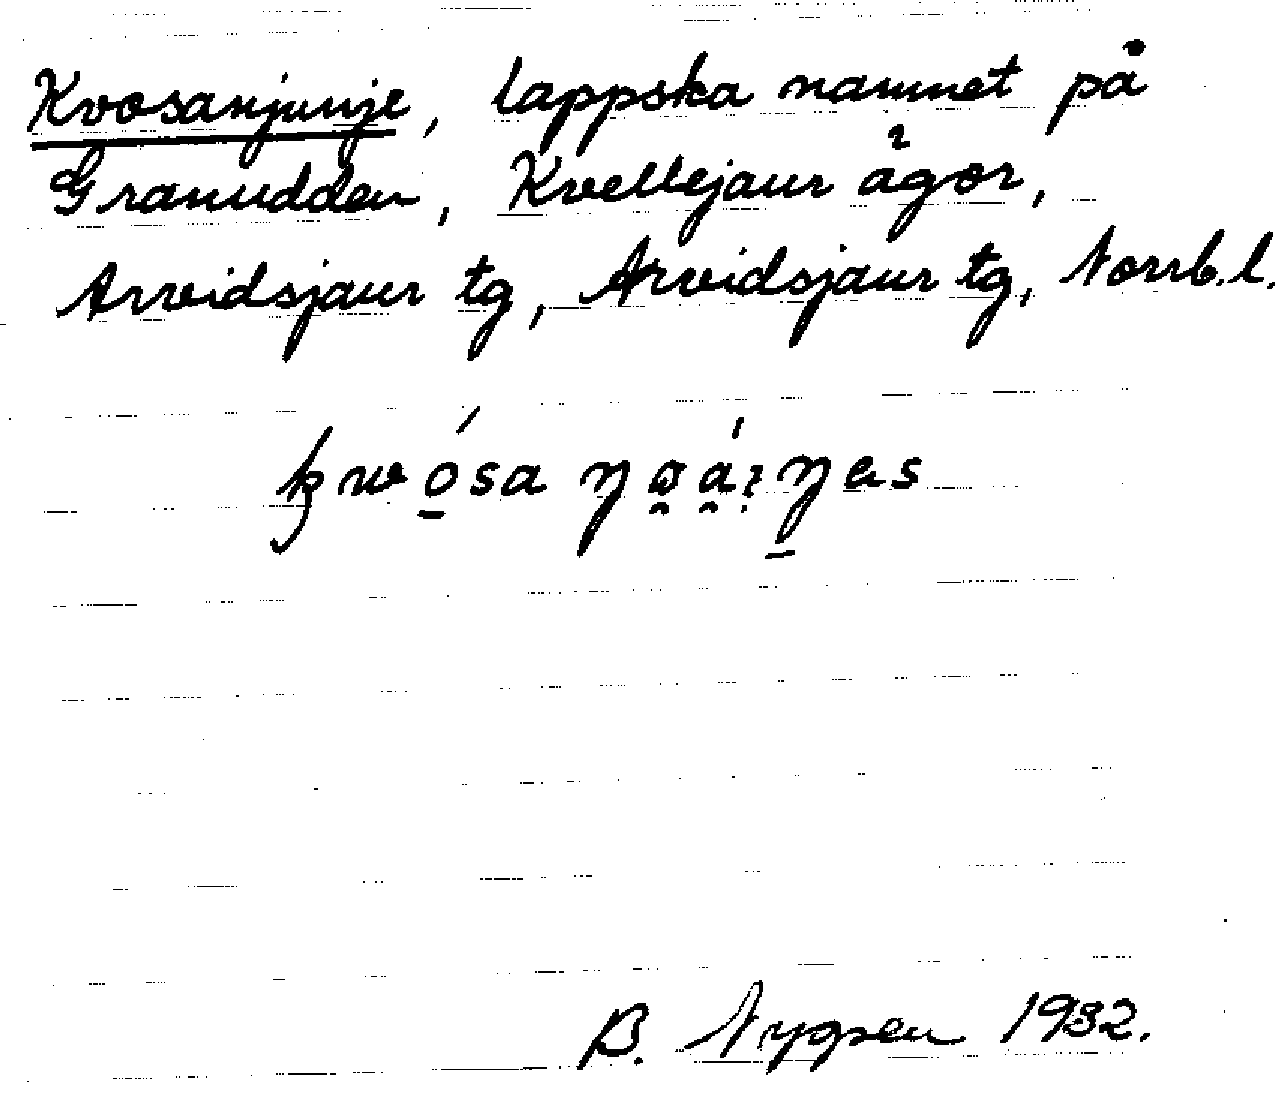 Kvosanjunje, lappska namnet på
Granudden, Kvellejaur ägor,
Arvidsjaur tg, Arvidsjaur tg, Norrb. l.
B. 1932.